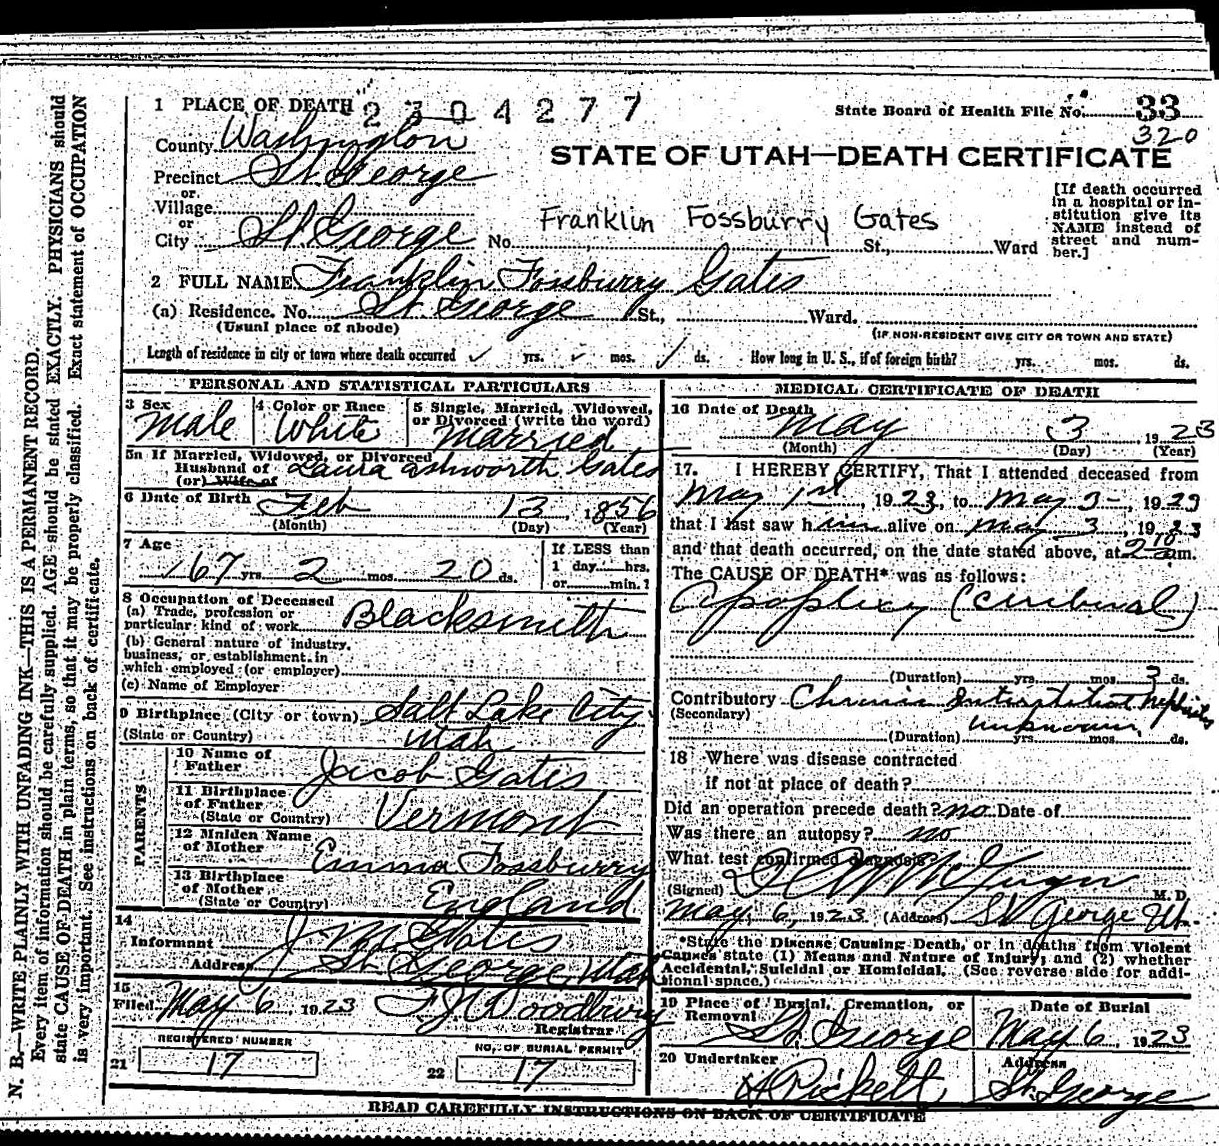 1 PLACE OF DEATH 2304277 State Board of Health File No. 33
320
County Washington
STATE OF UTAH—DEATH CERTIFICATE
Precinct St. George
or
Village
or
City St. George No. St., Ward
Franklin Fossburry Gates
[If death occurred in a hospital or institution give its NAME instead of street and number.]
2 FULL NAME Franklin Fossburry Gates
(a) Residence. No. St. George St., Ward.
(Usual place of abode) (IF NON-RESIDENT GIVE CITY OR TOWN AND STATE)
Length of residence in city or town where death occurred yrs. mos. ds. How long in U. S., if of foreign birth? yrs. mos. ds.
PERSONAL AND STATISTICAL PARTICULARS
3 Sex Male
4 Color or Race White
5 Single, Married, Widowed, or Divorced (write the word) Married
5a If Married, Widowed, or Divorced
Husband of Laura Ashworth Gates
(or) Wife of
6 Date of Birth Feb 13, 1856
(Month) (Day) (Year)
7 Age 67 yrs. 2 mos. 20 ds.
If LESS than
1 day hrs.
or min.?
8 Occupation of Deceased
(a) Trade, profession or
particular kind of work Blacksmith
(b) General nature of industry,
business, or establishment in
which employed (or employer)
(c) Name of Employer
9 Birthplace (City or town) Salt Lake City
(State or Country) Utah
PARENTS
10 Name of Father Jacob Gates
11 Birthplace of Father
(State or Country) Vermont
12 Maiden Name of Mother Emma Fossburry
13 Birthplace of Mother
(State or Country) England
14
Informant J. M. Gates
Address St. George, Utah
15
Filed May 6, 1923 F. J. Woodbury
Registrar
REGISTERED NUMBER
21 17
NO. OF BURIAL PERMIT
22 17
MEDICAL CERTIFICATE OF DEATH
16 Date of Death May 3, 1923
(Month) (Day) (Year)
17. I HEREBY CERTIFY, That I attended deceased from
May 1st, 1923, to May 3-, 1923
that I last saw him alive on May 3, 1923
and that death occurred, on the date stated above, at 2 10 am.
The CAUSE OF DEATH* was as follows:
Apoplexy (Cerebral)
(Duration) yrs. mos. 3 ds.
Contributory Chronic Interstitial Nephritis
(Secondary) unknown
(Duration) yrs. mos. ds.
18 Where was disease contracted
if not at place of death?
Did an operation precede death? no Date of
Was there an autopsy? no
What test confirmed diagnosis?
(Signed) McGregor M. D.
May 6, 1923 (Address) St George Ut.
*State the Disease Causing Death, or in deaths from Violent
Causes state (1) Means and Nature of Injury; and (2) whether
Accidental, Suicidal or Homicidal. (See reverse side for additional space.)
19 Place of Burial, Cremation, or Removal St. George
Date of Burial May 6, 1923
20 Undertaker Pickett
Address St. George
READ CAREFULLY INSTRUCTIONS ON BACK OF CERTIFICATE
N. B.—WRITE PLAINLY WITH UNFADING INK—THIS IS A PERMANENT RECORD.
Every item of information should be carefully supplied. AGE should be stated EXACTLY. PHYSICIANS should
state CAUSE OF DEATH in plain terms, so that it may be properly classified. Exact statement of OCCUPATION
is very important. See instructions on back of certificate.